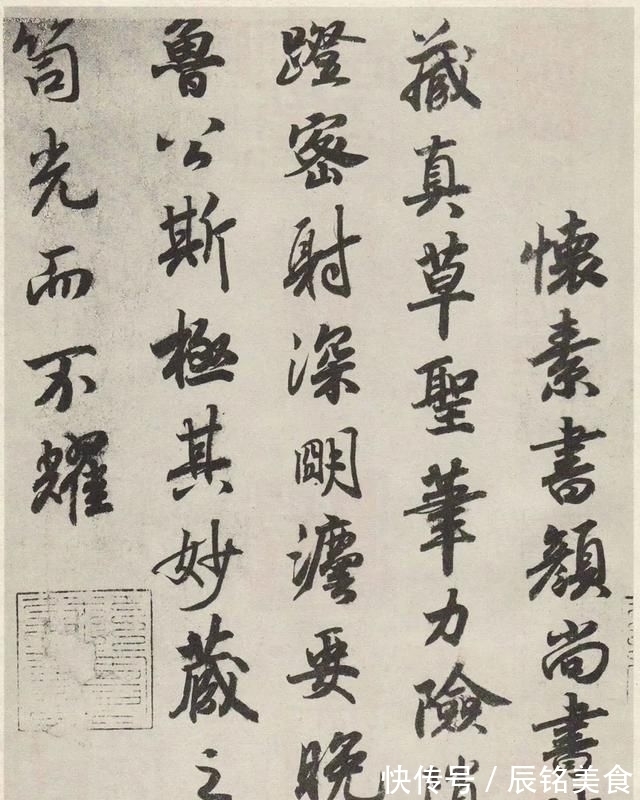 懷素書顔尚書
藏真草聖筆力險
蹬密射深明要晚
魯公斯極其妙藏之
笥光而不耀
快传号／辰铭美食